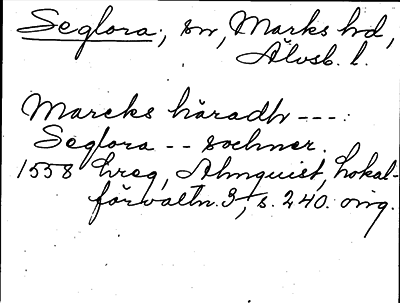 Seglora, sn, Marks hd,
Älvsb. l.
Marcks häradh ---
Seglora -- sochner.
1558 hreg, Almquist, Lokal-
förvaltn. 3, s. 240. orig.